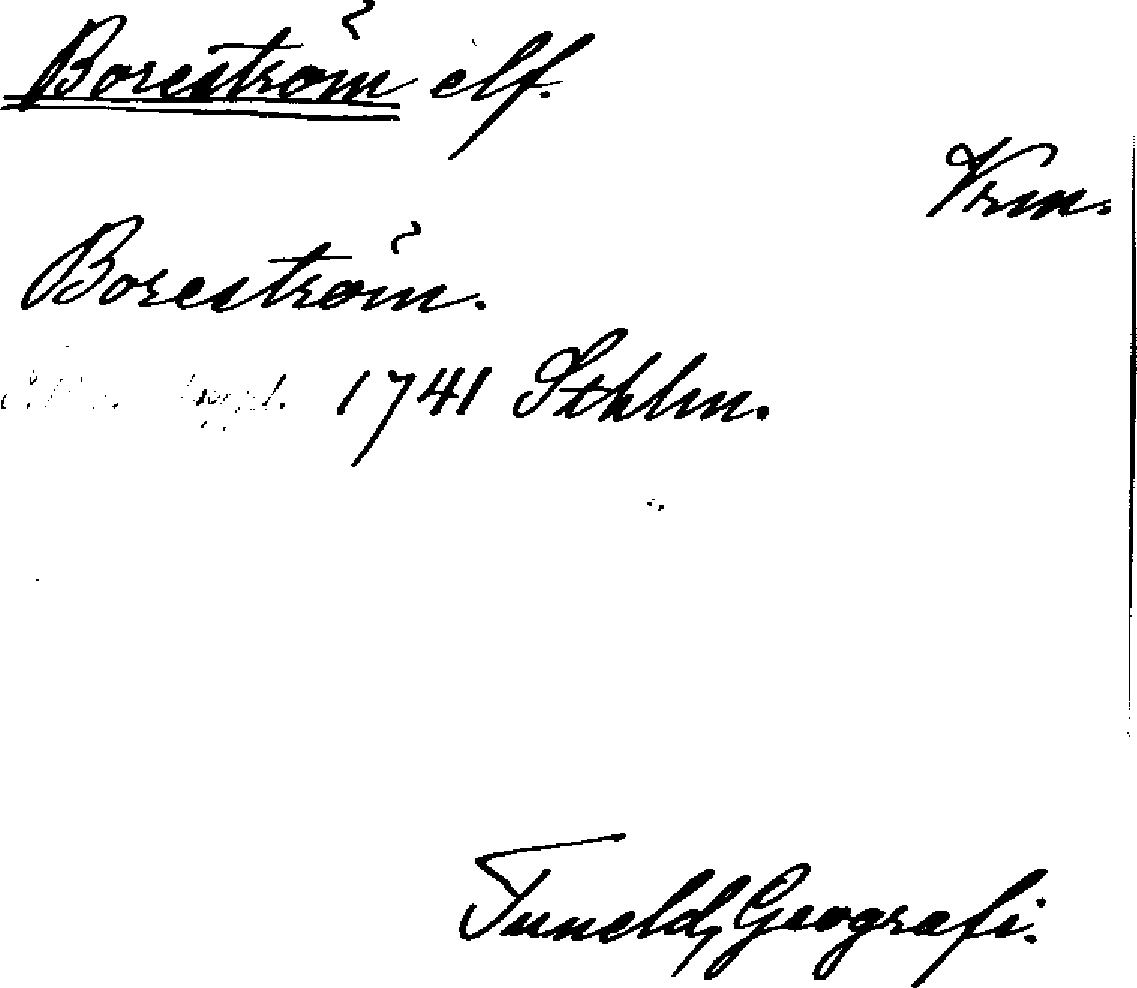 Boreström elf.
Vrm.
Boreström.
uppl. 1741 Sthlm.
Tuneld, Geografi.